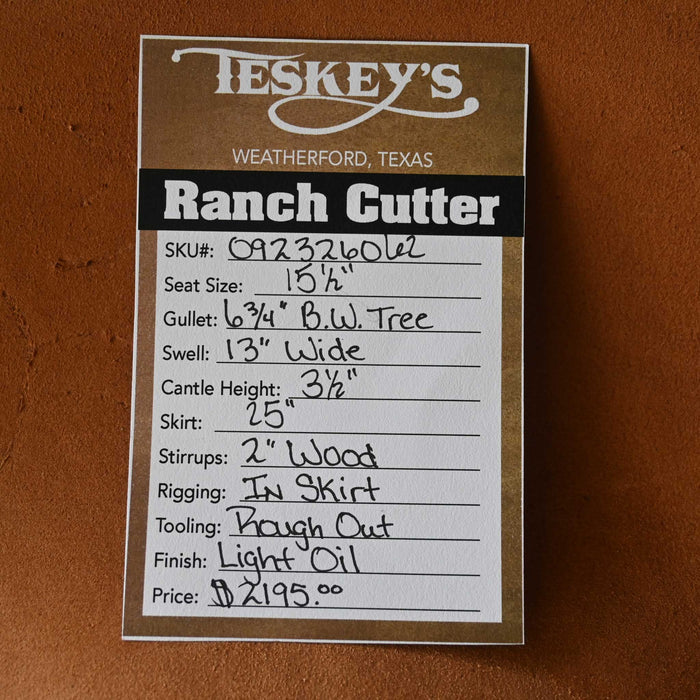 TESKEY'S
WEATHERFORD, TEXAS
Ranch Cutter
SKU#: 092326062
Seat Size: 15½"
Gullet: 6¾" B.W. Tree
Swell: 13" Wide
Cantle Height: 3½"
Skirt: 25"
Stirrups: 2" Wood
Rigging: In Skirt
Tooling: Rough Out
Finish: Light Oil
Price: $2195.00